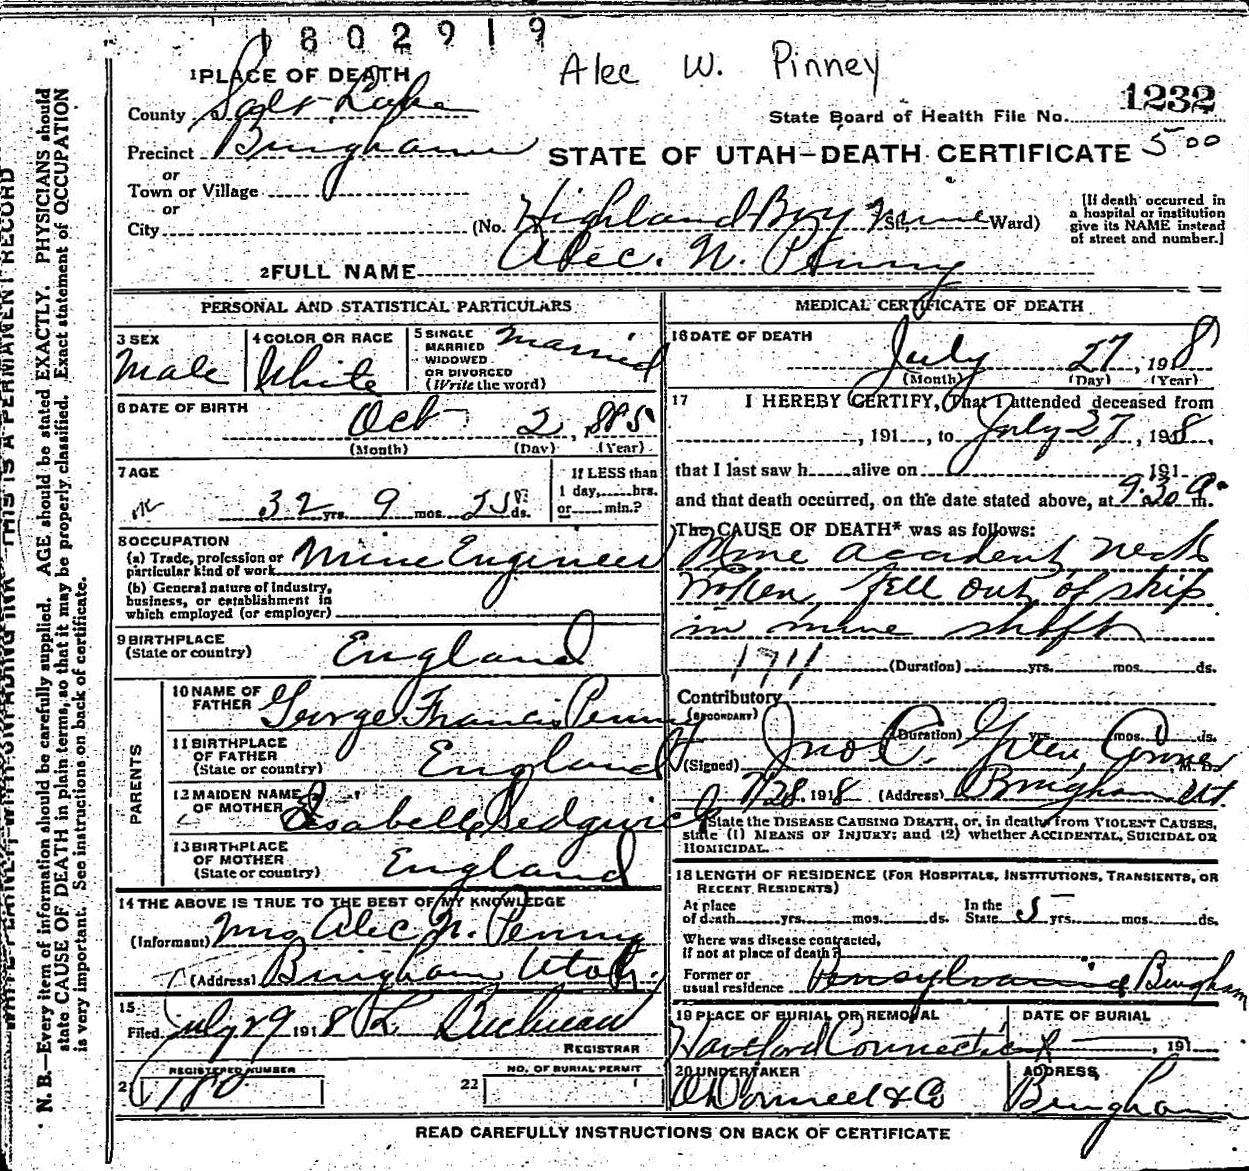 1802919
Alec W. Pinney
1 PLACE OF DEATH
1232
County Salt Lake
State Board of Health File No.
Precinct Bingham
STATE OF UTAH—DEATH CERTIFICATE 500
or
Town or Village
or
City
(No. Highland Boy Mine St.; Ward)
[If death occurred in
a hospital or institution
give its NAME instead
of street and number.]
2 FULL NAME Alec. N. Penny
PERSONAL AND STATISTICAL PARTICULARS
3 SEX
Male
4 COLOR OR RACE
White
5 SINGLE
MARRIED
WIDOWED
OR DIVORCED
(Write the word)
Married
6 DATE OF BIRTH
Oct 2, 1885
(Month) (Day) (Year)
7 AGE
32 yrs. 9 mos. 25 ds.
If LESS than
1 day, hrs.
or min.?
8 OCCUPATION
(a) Trade, profession or
particular kind of work Mine Engineer
(b) General nature of industry,
business, or establishment in
which employed (or employer)
9 BIRTHPLACE
(State or country) England
PARENTS
10 NAME OF
FATHER George Francis Penny
11 BIRTHPLACE
OF FATHER
(State or country) England
12 MAIDEN NAME
OF MOTHER Isabella Sedgwick
13 BIRTHPLACE
OF MOTHER
(State or country) England
14 THE ABOVE IS TRUE TO THE BEST OF MY KNOWLEDGE
(Informant) Mrs Alec N. Penny
(Address) Bingham Utah.
15
Filed July 29 1918 L.
REGISTRAR
21 REGISTERED NUMBER
180
22 NO. OF BURIAL PERMIT
MEDICAL CERTIFICATE OF DEATH
16 DATE OF DEATH
July 27, 1918
(Month) (Day) (Year)
17 I HEREBY CERTIFY, That I attended deceased from
, 191 , to July 27, 1918,
that I last saw h alive on 191
and that death occurred, on the date stated above, at 9:30 P. m.
The CAUSE OF DEATH* was as follows:
Mine accident, neck
broken, fell out of skip
in mine shaft
1711 (Duration) yrs. mos. ds.
Contributory
(SECONDARY)
(Duration) yrs. mos. ds.
(Signed) Jno C. Green, Coroner M. D.
7/28, 1918 (Address) Bingham Ut.
*State the DISEASE CAUSING DEATH, or, in deaths from VIOLENT CAUSES,
state (1) MEANS OF INJURY; and (2) whether ACCIDENTAL, SUICIDAL OR
HOMICIDAL.
18 LENGTH OF RESIDENCE (FOR HOSPITALS, INSTITUTIONS, TRANSIENTS, OR
RECENT RESIDENTS)
At place
of death yrs. mos. ds.
In the
State 5 yrs. mos. ds.
Where was disease contracted,
if not at place of death?
Former or
usual residence Pennsylvania Bingham
19 PLACE OF BURIAL OR REMOVAL
Hartford Connecticut
DATE OF BURIAL
, 191
20 UNDERTAKER
O'Donnell & Co
ADDRESS
Bingham
READ CAREFULLY INSTRUCTIONS ON BACK OF CERTIFICATE
WRITE PLAINLY, WITH UNFADING INK—THIS IS A PERMANENT RECORD
N. B.—Every item of information should be carefully supplied. AGE should be stated EXACTLY. PHYSICIANS should
state CAUSE OF DEATH in plain terms, so that it may be properly classified. Exact statement of OCCUPATION
is very important. See instructions on back of certificate.